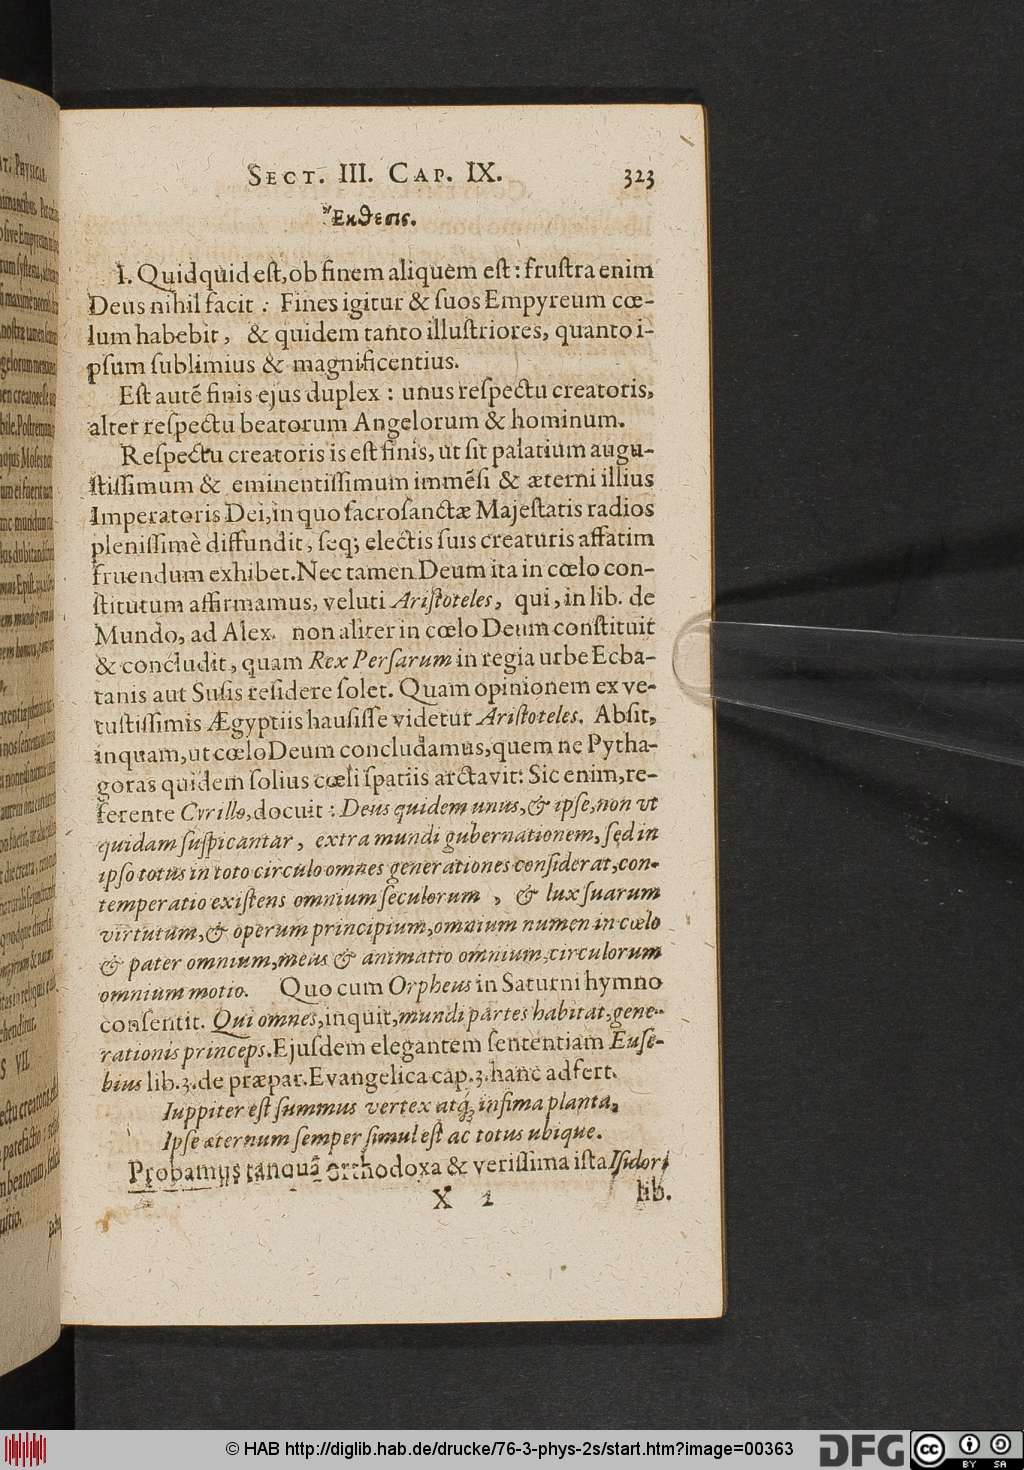 SECT. III. CAP. IX. 323
Ἔκθεσις.
I. Quidquid est, ob finem aliquem est: frustra enim
Deus nihil facit : Fines igitur & suos Empyreum cœ-
lum habebit, & quidem tanto illustriores, quanto i-
psum sublimius & magnificentius.
Est autē finis ejus duplex : unus respectu creatoris,
alter respectu beatorum Angelorum & hominum.
Respectu creatoris is est finis, ut sit palatium augu-
stissimum & eminentissimum immēsi & æterni illius
Imperatoris Dei, in quo sacrosanctæ Majestatis radios
plenissimè diffundit, seq; electis suis creaturis affatim
fruendum exhibet. Nec tamen Deum ita in cœlo con-
stitutum affirmamus, veluti Aristoteles, qui, in lib. de
Mundo, ad Alex. non aliter in cœlo Deum constituit
& concludit, quam Rex Persarum in regia urbe Ecba-
tanis aut Susis residere solet. Quam opinionem ex ve-
tustissimis Ægyptiis hausisse videtur Aristoteles. Absit,
inquam, ut cœlo Deum concludamus, quem ne Pytha-
goras quidem solius cœli spatiis arctavit: Sic enim, re-
ferente Cyrillo, docuit : Deus quidem unus, & ipse, non vt
quidam suspicantar, extra mundi gubernationem, sed in
ipso totus in toto circulo omnes generationes considerat, con-
temperatio existens omnium seculorum , & lux suarum
virtutum, & operum principium, omnium numen in cœlo
& pater omnium, mens & animatio omnium, circulorum
omnium motio. Quo cum Orpheus in Saturni hymno
consentit. Qui omnes, inquit, mundi partes habitat, gene-
rationis princeps. Ejusdem elegantem sententiam Euse-
bius lib. 3. de præpar. Evangelica cap. 3. hanc adfert.
Iuppiter est summus vertex atq; infima planta,
Ipse æternum semper simul est ac totus ubique.
Probamus tanquā orthodoxa & verissima ista Isidori
X 2 lib.
© HAB http://diglib.hab.de/drucke/76-3-phys-2s/start.htm?image=00363
DFG
cc BY SA